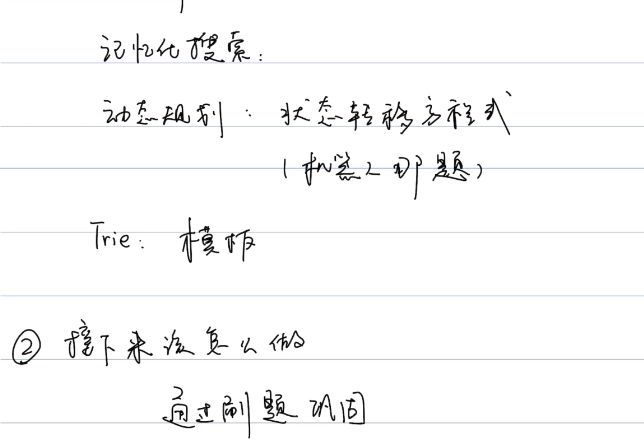 记忆化搜索：
动态规划：状态转移方程式
（机器人那题）
Trie：模板
② 接下来该怎么做
通过刷题巩固